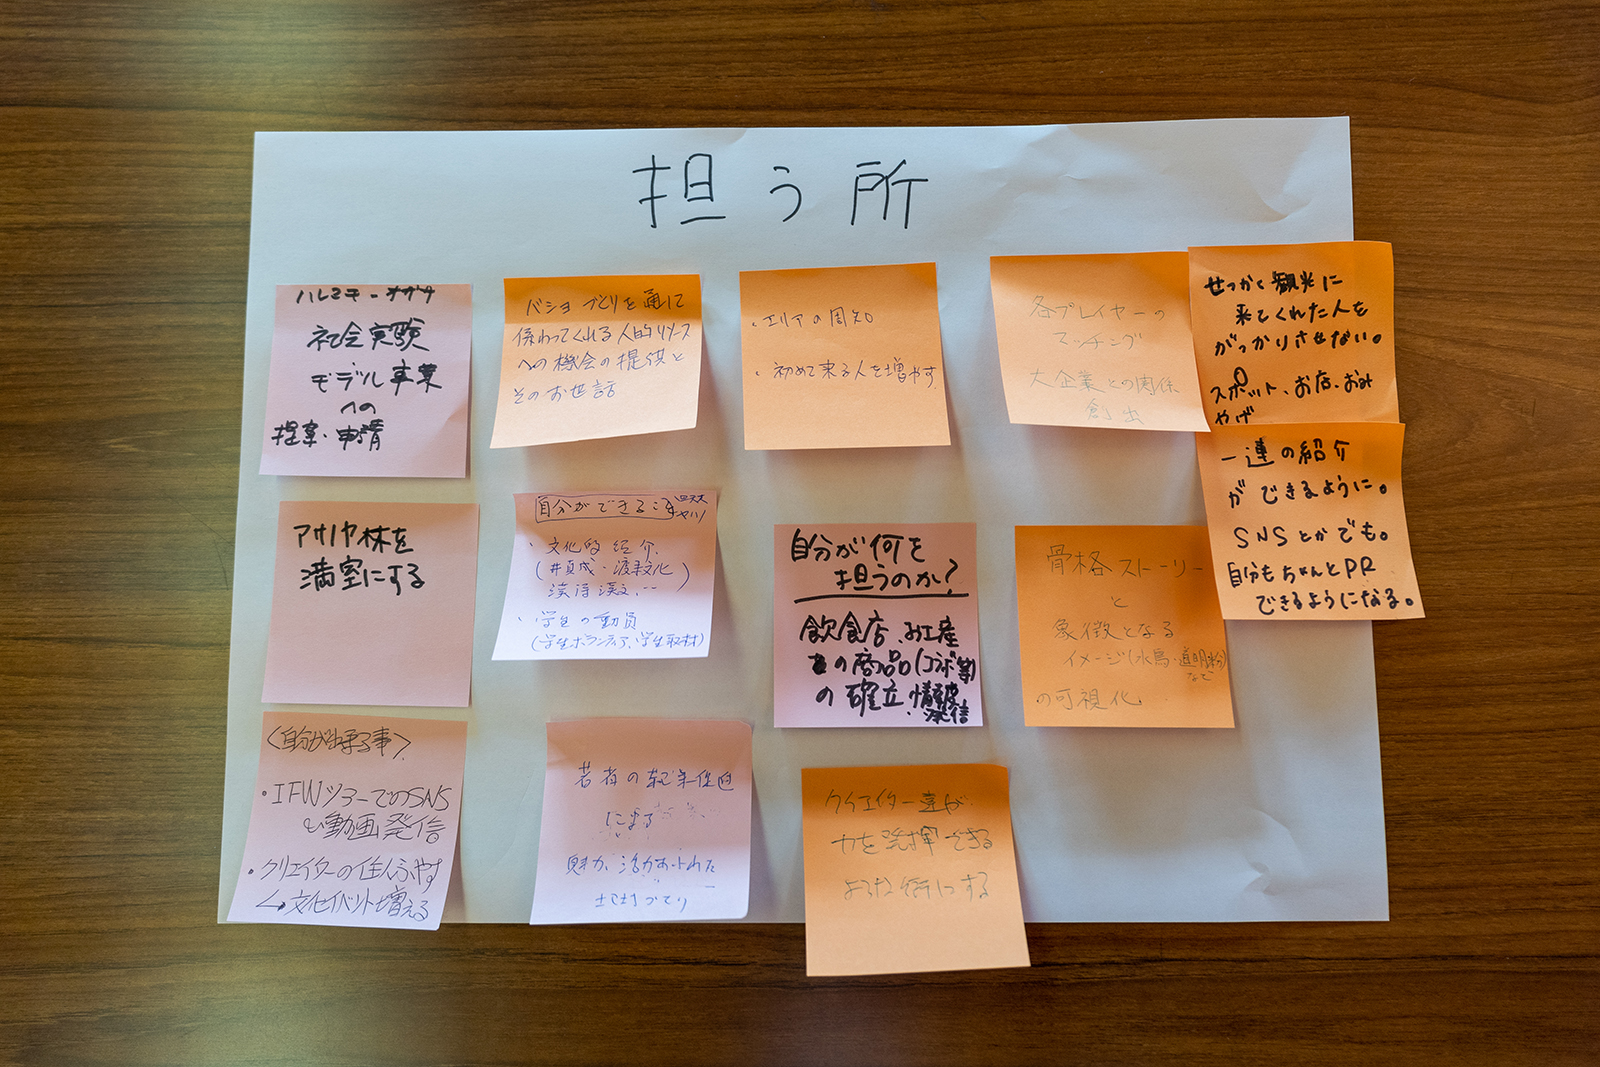 担う所
社会実験
モデル事業
への
提案・申請
バショづくりを通じて
係わってくれる人的リソース
への機会の提供と
そのお世話
・エリアの周知
・初めて来る人を増やす
各プレイヤーの
マッチング
大企業との関係
創出
せっかく観光に
来てくれた人を
がっかりさせない。
スポット、お店、おみ
やげ
一連の紹介
ができるように。
SNSとかでも。
自分もちゃんとPR
できるようになる。
アサノヤ林を
満室にする
自分ができること
・文化的紹介
(井真成・渡来文化
漢詩漢文、…)
・学生の動員
(学生ボランティア、学生取材)
自分が何を
担うのか?
飲食店、お土産
の商品(コラボ等)
の確立、情報発信
骨格ストーリー
と
象徴となる
イメージ(水鳥・道明寺粉)
など
の可視化
〈自分が出来る事〉
・IFWツアーでのSNS
動画発信
・クリエイターの住人ふやす
↳文化イベント増える
若者の
魅力、活力あふれた
づくり
クリエイター達が
力を発揮できる
ような街にする